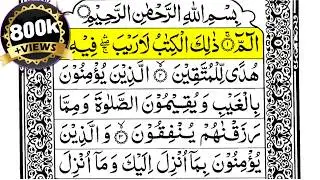 800k
+VIEWS
بِسْمِ اللّٰهِ الرَّحْمٰنِ الرَّحِيْمِ
الٓمّٓ ۚ ذٰلِكَ الْكِتٰبُ لَا رَيْبَ ۛ فِيْهِ ۛ
هُدًى لِّلْمُتَّقِيْنَ ۙ الَّذِيْنَ يُؤْمِنُوْنَ
بِالْغَيْبِ وَيُقِيْمُوْنَ الصَّلٰوةَ وَمِمَّا
رَزَقْنٰهُمْ يُنْفِقُوْنَ ۙ وَالَّذِيْنَ
يُؤْمِنُوْنَ بِمَآ اُنْزِلَ اِلَيْكَ وَمَآ اُنْزِلَ